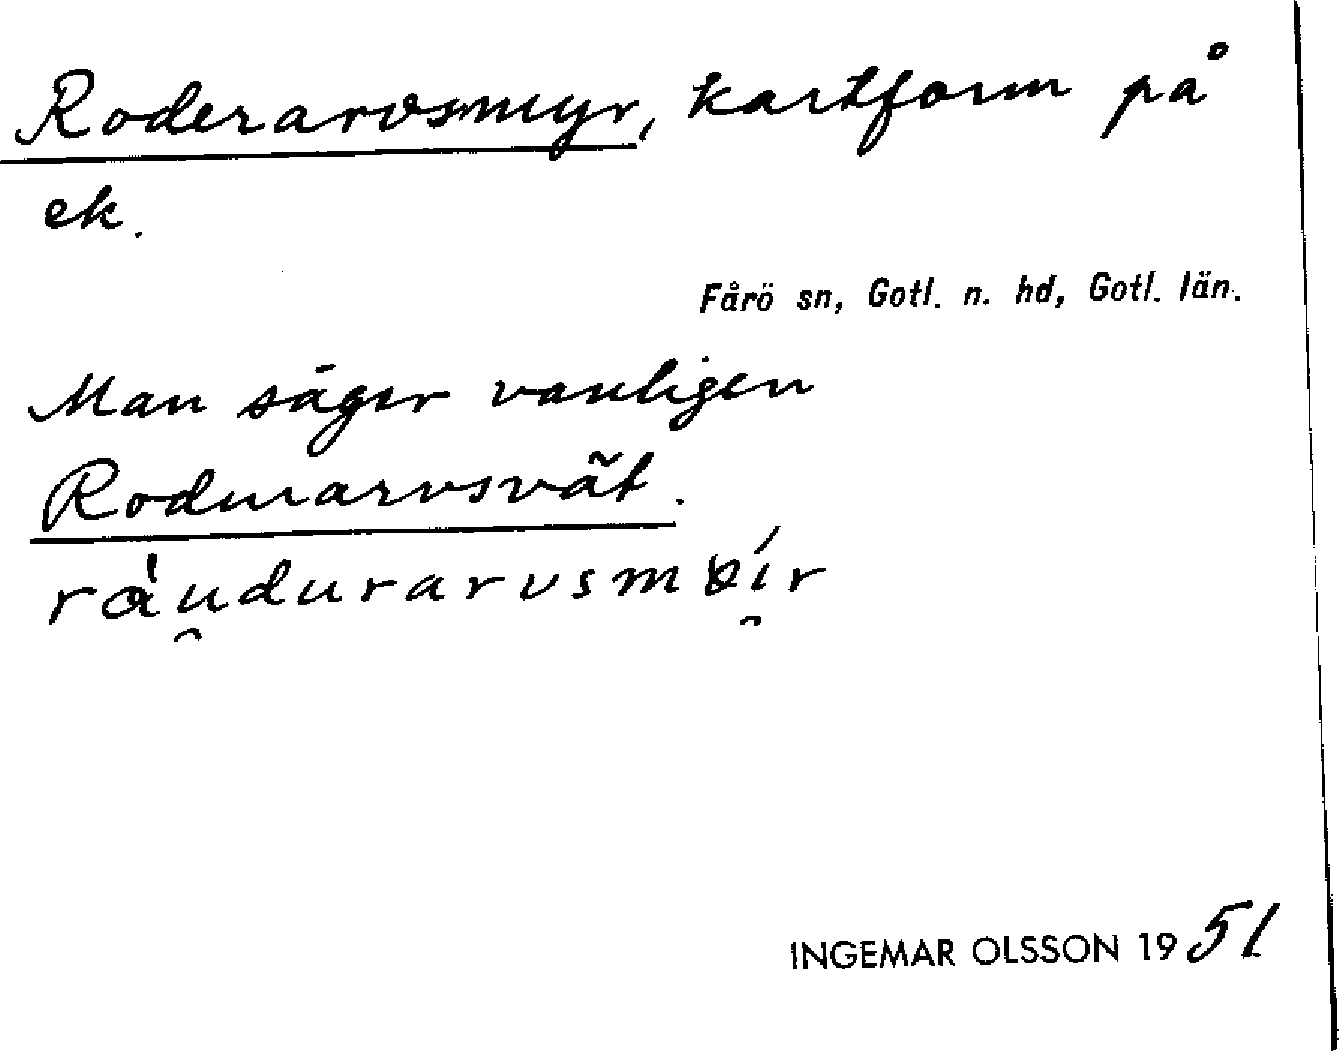 Roderarvsmyr, kartform på
ek.
Fårö sn, Gotl. n. hd, Gotl. län.
Man säger vanligen
Rodurarvsvät.
INGEMAR OLSSON 1951